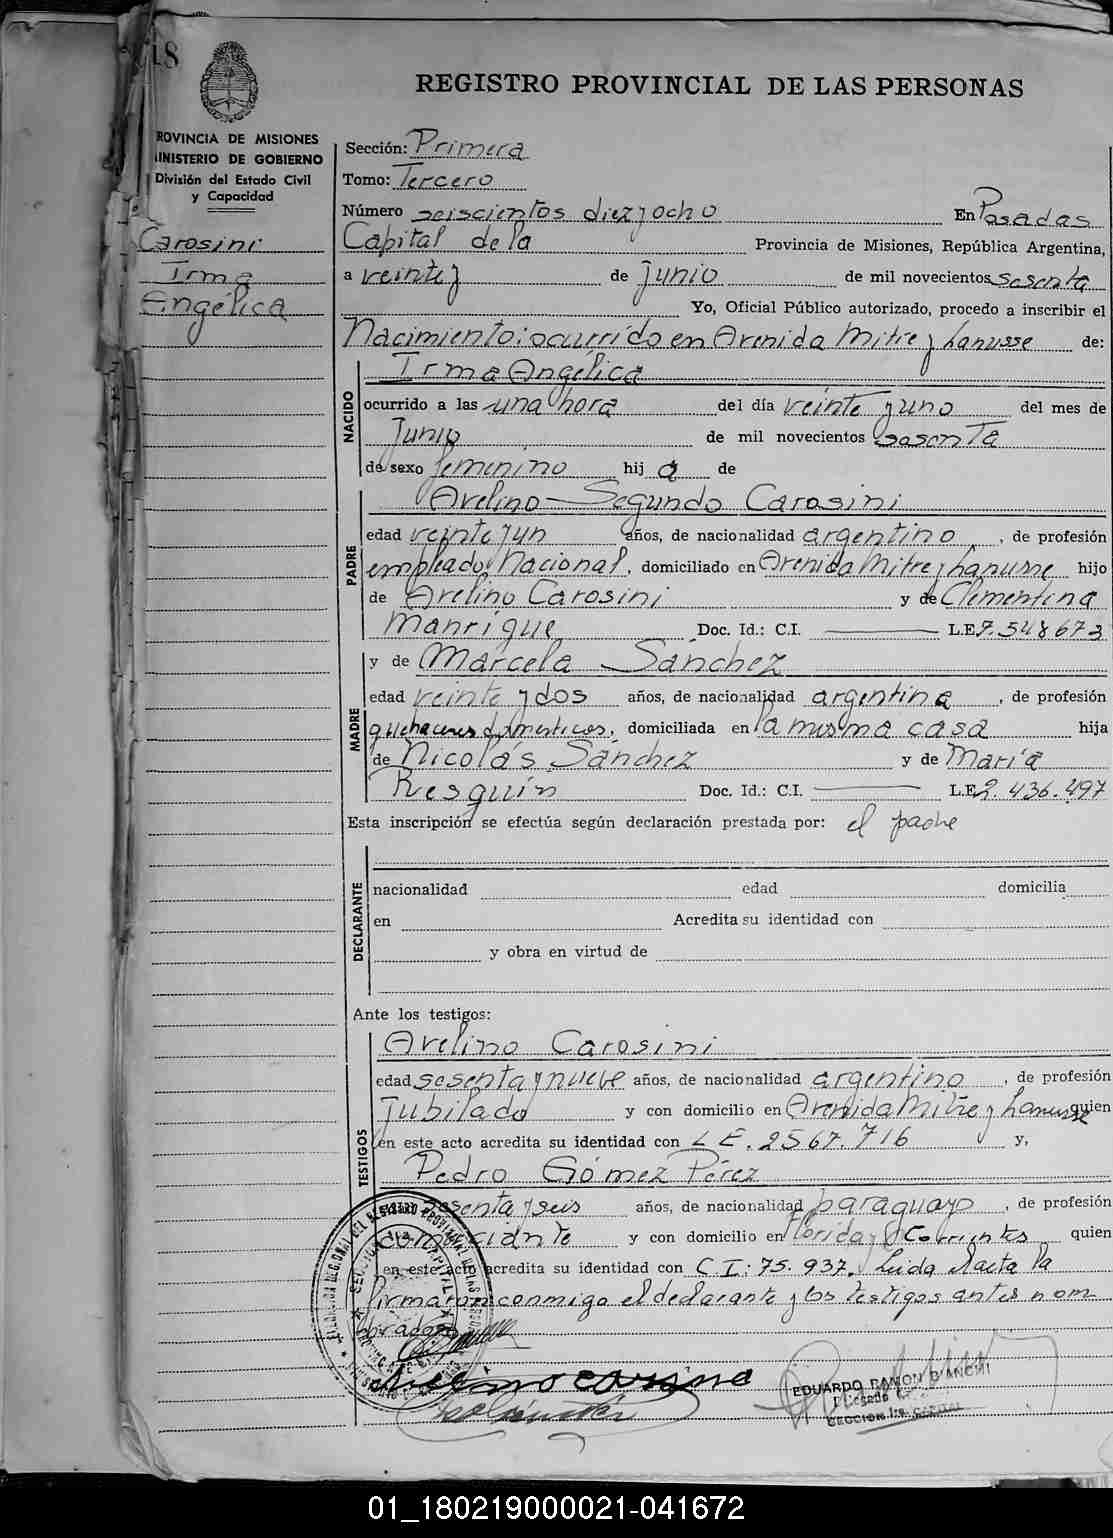 18
REGISTRO PROVINCIAL DE LAS PERSONAS
ROVINCIA DE MISIONES
INISTERIO DE GOBIERNO
División del Estado Civil
y Capacidad
Carosini
Irma
Angélica
Sección: Primera
Tomo: Tercero
Número seiscientos diezyocho En Posadas
Capital de la Provincia de Misiones, República Argentina,
a veintey de Junio de mil novecientos sesenta
Yo, Oficial Público autorizado, procedo a inscribir el
Nacimiento: ocurrido en Avenida Mitre y Lanusse de:
NACIDO
Irma Angélica
ocurrido a las una hora del día veinte yuno del mes de
Junio de mil novecientos sesenta
de sexo femenino hij a de
PADRE
Avelino Segundo Carosini
edad veinteyun años, de nacionalidad argentino, de profesión
empleado Nacional, domiciliado en Avenida Mitre y Lanusse hijo
de Avelino Carosini y de Clementina
Manrique Doc. Id.: C.I. L.E. 7.548673
MADRE
y de Marcela Sánchez
edad veinte y dos años, de nacionalidad argentina, de profesión
quehaceres domésticos, domiciliada en la misma casa hija
de Nicolás Sánchez y de María
Resquín Doc. Id.: C.I. L.E. 2.436.497
Esta inscripción se efectúa según declaración prestada por: el padre
DECLARANTE
nacionalidad edad domicilia
en Acredita su identidad con
y obra en virtud de
Ante los testigos:
TESTIGOS
Avelino Carosini
edad sesenta y nueve años, de nacionalidad argentino, de profesión
Jubilado y con domicilio en Avenida Mitre y Lanusse quien
en este acto acredita su identidad con L E. 2567.716 y,
Pedro Gómez Pérez
sesenta y seis años, de nacionalidad paraguayo, de profesión
comerciante y con domicilio en Florida y Corrientes quien
en este acto acredita su identidad con C.I: 75.937. Leída Nacta la
firmaron conmigo el declarante y los testigos antes nom
brados
Avelino Carosini
EDUARDO RAMON D'ANCHI
SECCION 1ra. CAPITAL
01_180219000021-041672